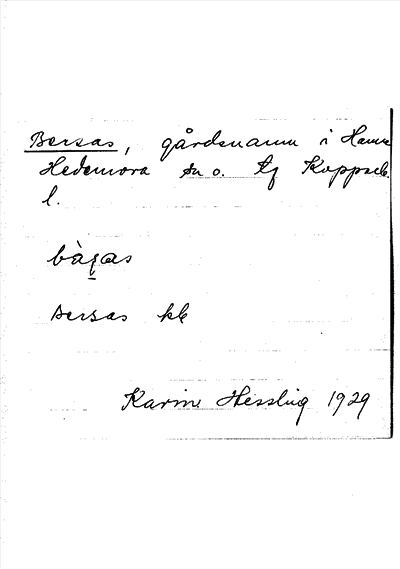 Bersas, gårdsnamn i Hamre
Hedemora sn o. tg Kopparb.
l.
bàʂas
Bersas kb
Karin Hessling 1929